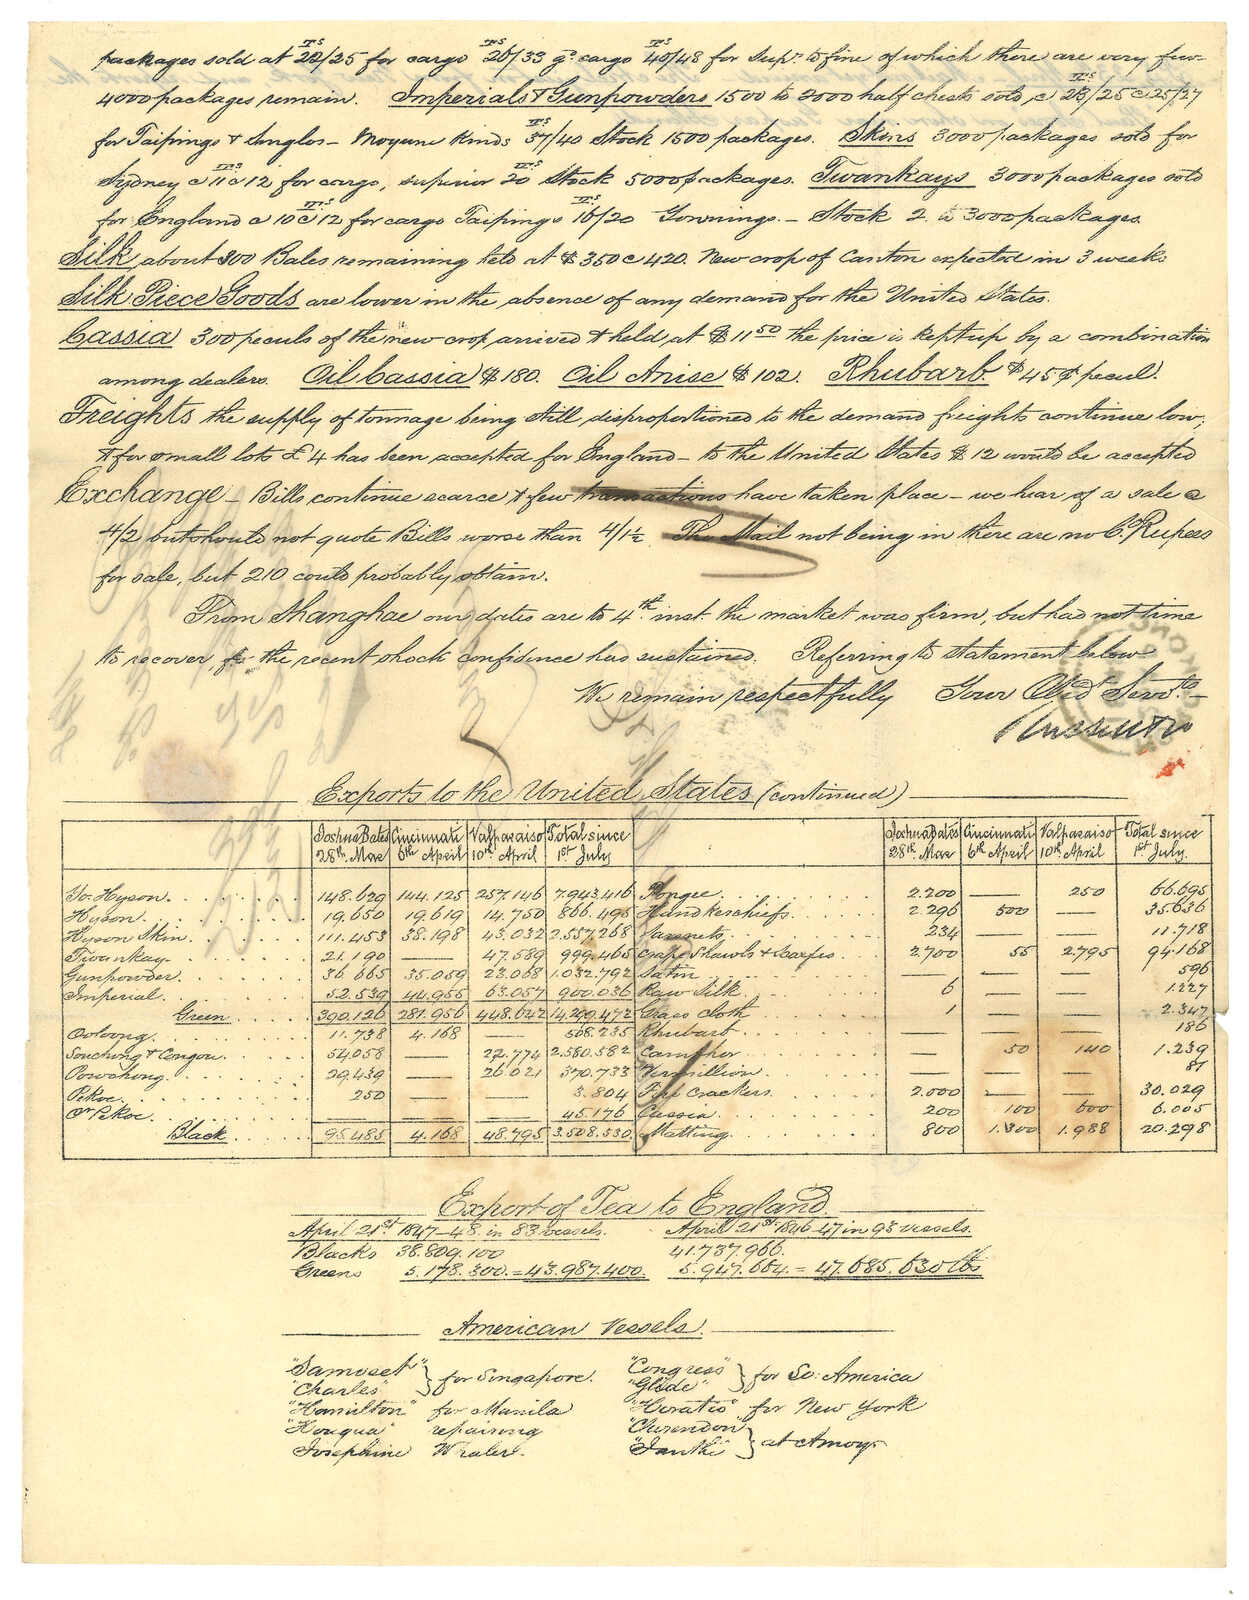 packages sold at Ts 22/25 for cargo Ts 26/33 gd cargo Ts 40/48 for Supr to fine of which there are very few
4000 packages remain. Imperials & Gunpowders 1500 to 2000 half chests sold, @ Ts 23/25 @ 25/27
for Taipings & Singlos – Moyune Kinds Ts 37/40 Stock 1500 packages. Skins 3000 packages sold for
Sydney @ Ts 11 @ 12 for cargo, superior Ts 20 Stock 5000 packages. Twankays 3000 packages sold
for England @ 10 @ Ts 12 for cargo Taipings Ts 16/20 Gownings. – Stock 2 to 3000 packages.
Silk, about 300 Bales remaining held at $350 @ 420. New crop of Canton expected in 3 weeks
Silk Piece Goods are lower in the absence of any demand for the United States.
Cassia 300 peculs of the new crop arrived & held at $11 50 the price is kept up by a combination
among dealers. Oil Cassia $180. Oil Anise $102. Rhubarb. $45 ⅌ pecul.
Freights the supply of tonnage being still disproportioned to the demand freights continue low;
& for small lots £4 has been accepted for England – to the United States $12 would be accepted
Exchange – Bills continue scarce & few transactions have taken place – we hear of a sale @
4/2 but should not quote Bills worse than 4/1½ The Mail not being in there are no Co Rupees
for sale, but 210 could probably obtain.
From Shanghae our dates are to 4th inst. the market was firm, but had not time
to recover, fr the recent shock confidence has sustained. Referring to statement below
We remain respectfully Your Obedt Servts –
Exports to the United States (continued)
Joshua Bates 28th. Mar Cincinnati 6th April Valparaiso 10th April Total since 1st July Joshua Bates 28th. Mar Cincinnati 6th April Valparaiso 10th April Total since 1st July.
Yo. Hyson. 148.629 144.125 257.146 7.943.416 Pongee 2.200 — 250 66.695
Hyson. 19.650 19.619 14.750 866.495 Handkerchiefs. 2.296 500 — 35.636
Hyson Skin. 111.453 38.198 43.032 2.557.268 Sarsnets. 234 — — 11.718
Twankay. 21.190 — 47.589 999.465 Crape Shawls & Scarfes 2.700 55 2.795 94.168
Gunpowder. 36.665 35.059 23.068 1.032.792 Satin — — — 596
Imperial. 52.539 44.955 63.057 900.036 Raw Silk. 6 — — 1.227
Green 390.126 281.956 448.642 14.299.472 Grass Cloth 1 — — 2.347
Oolong. 11.738 4.168 — 508.235 Rhubarb 186
Souchong & Congou. 54.058 — 22.774 2.580.582 Camphor — 50 140 1.239
Powchong. 29.439 — 26.021 370.733 Vermillion. — — — 87
Pekoe. 250 3.804 Fire Crackers. 2.000 — — 30.029
Or Pekoe. — — — 45.176 Cassia. 200 100 600 6.005
Black. 95.485 4.168 48.795 3.508.530 Matting. 800 1.300 1.988 20.298
Export of Tea to England.
April 21st 1847–48 in 83 vessels. April 21st 1846–47 in 93 vessels.
Blacks 38.809.100 41.737.966.
Greens 5.178.300. = 43.987.400. 5.947.664. = 47.685.630 lbs
American Vessels.
"Samoset" "Charles" } for Singapore. "Congress" "Glide" } for So: America
"Hamilton" for Manila "Horatio" for New York
"Houqua" repairing "Clarendon"
Josephine Whaler. "Ianthe" } at Amoy.